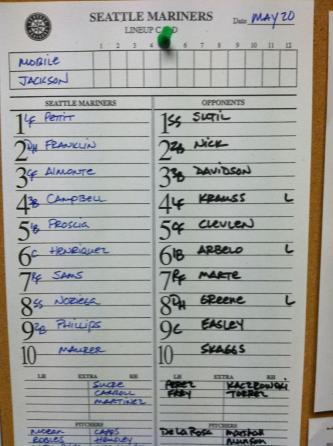 SEATTLE MARINERS
LINEUP CARD
Date MAY 20
1 2 3 4 5 6 7 8 9 10 11 12
MOBILE
JACKSON
SEATTLE MARINERS
1 LF PETIT
2 DH FRANKLIN
3 CF ALMONTE
4 3B CAMPBELL
5 1B PROSCIA
6 C HENRIQUEZ
7 RF SAMS
8 SS NORIEGA
9 2B PHILLIPS
10 MAURER
LH EXTRA RH
SUCRE
CARROLL
MARTINEZ
PITCHERS
MORAN CAPPS
ROBLES HENSLEY
OPPONENTS
1 SS SUTIL
2 2B NICK
3 3B DAVIDSON
4 LF KRAUSS L
5 CF CLEVLEN
6 1B ARBELO L
7 RF MARTE
8 DH GREENE L
9 C EASLEY
10 SKAGGS
LH EXTRA RH
PEREZ KACZROWSKI
FREY TORREZ
PITCHERS
DE LA ROSA MARSHALL
MUNSON